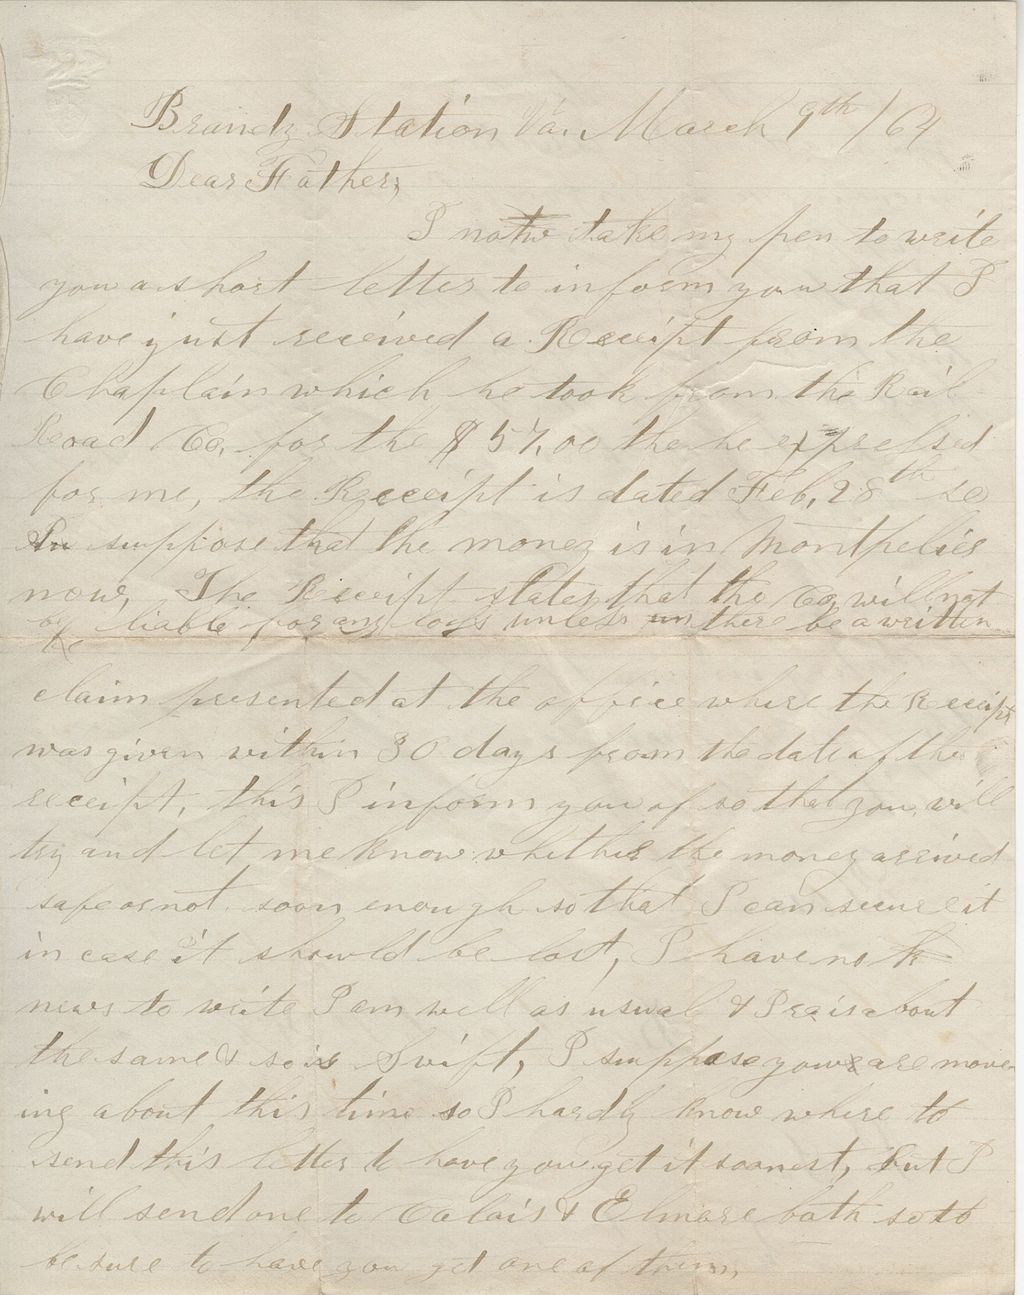 Brandy Station Va. March 9th /64
Dear Father,
I now take my pen to write
you a short letter to inform you that I
have just received a Receipt from the
Chaplain which he took from the Rail
Road Co. for the $57.00 the he expressed
for me, the Receipt is dated Feb, 28th so
I suppose that the money is in Montpelier
now, The Receipt states that the Co, will not
be liable for any loss unless there be a written
claim presented at the office where the Receipt
was given within 30 days from the date of the
receipt, this I inform you of so that you will
try and let me know whether the money arrived
safe or not soon enough so that I can secure it
in case it should be lost, I have no
news to write I am well as usual & Pra is about
the same & so is Swift, I suppose you are move
ing about this time so I hardly know where to
send this letter to have you get it soonest, but I
will send one to Calais & Elmore both so to
be sure to have you get one of them,